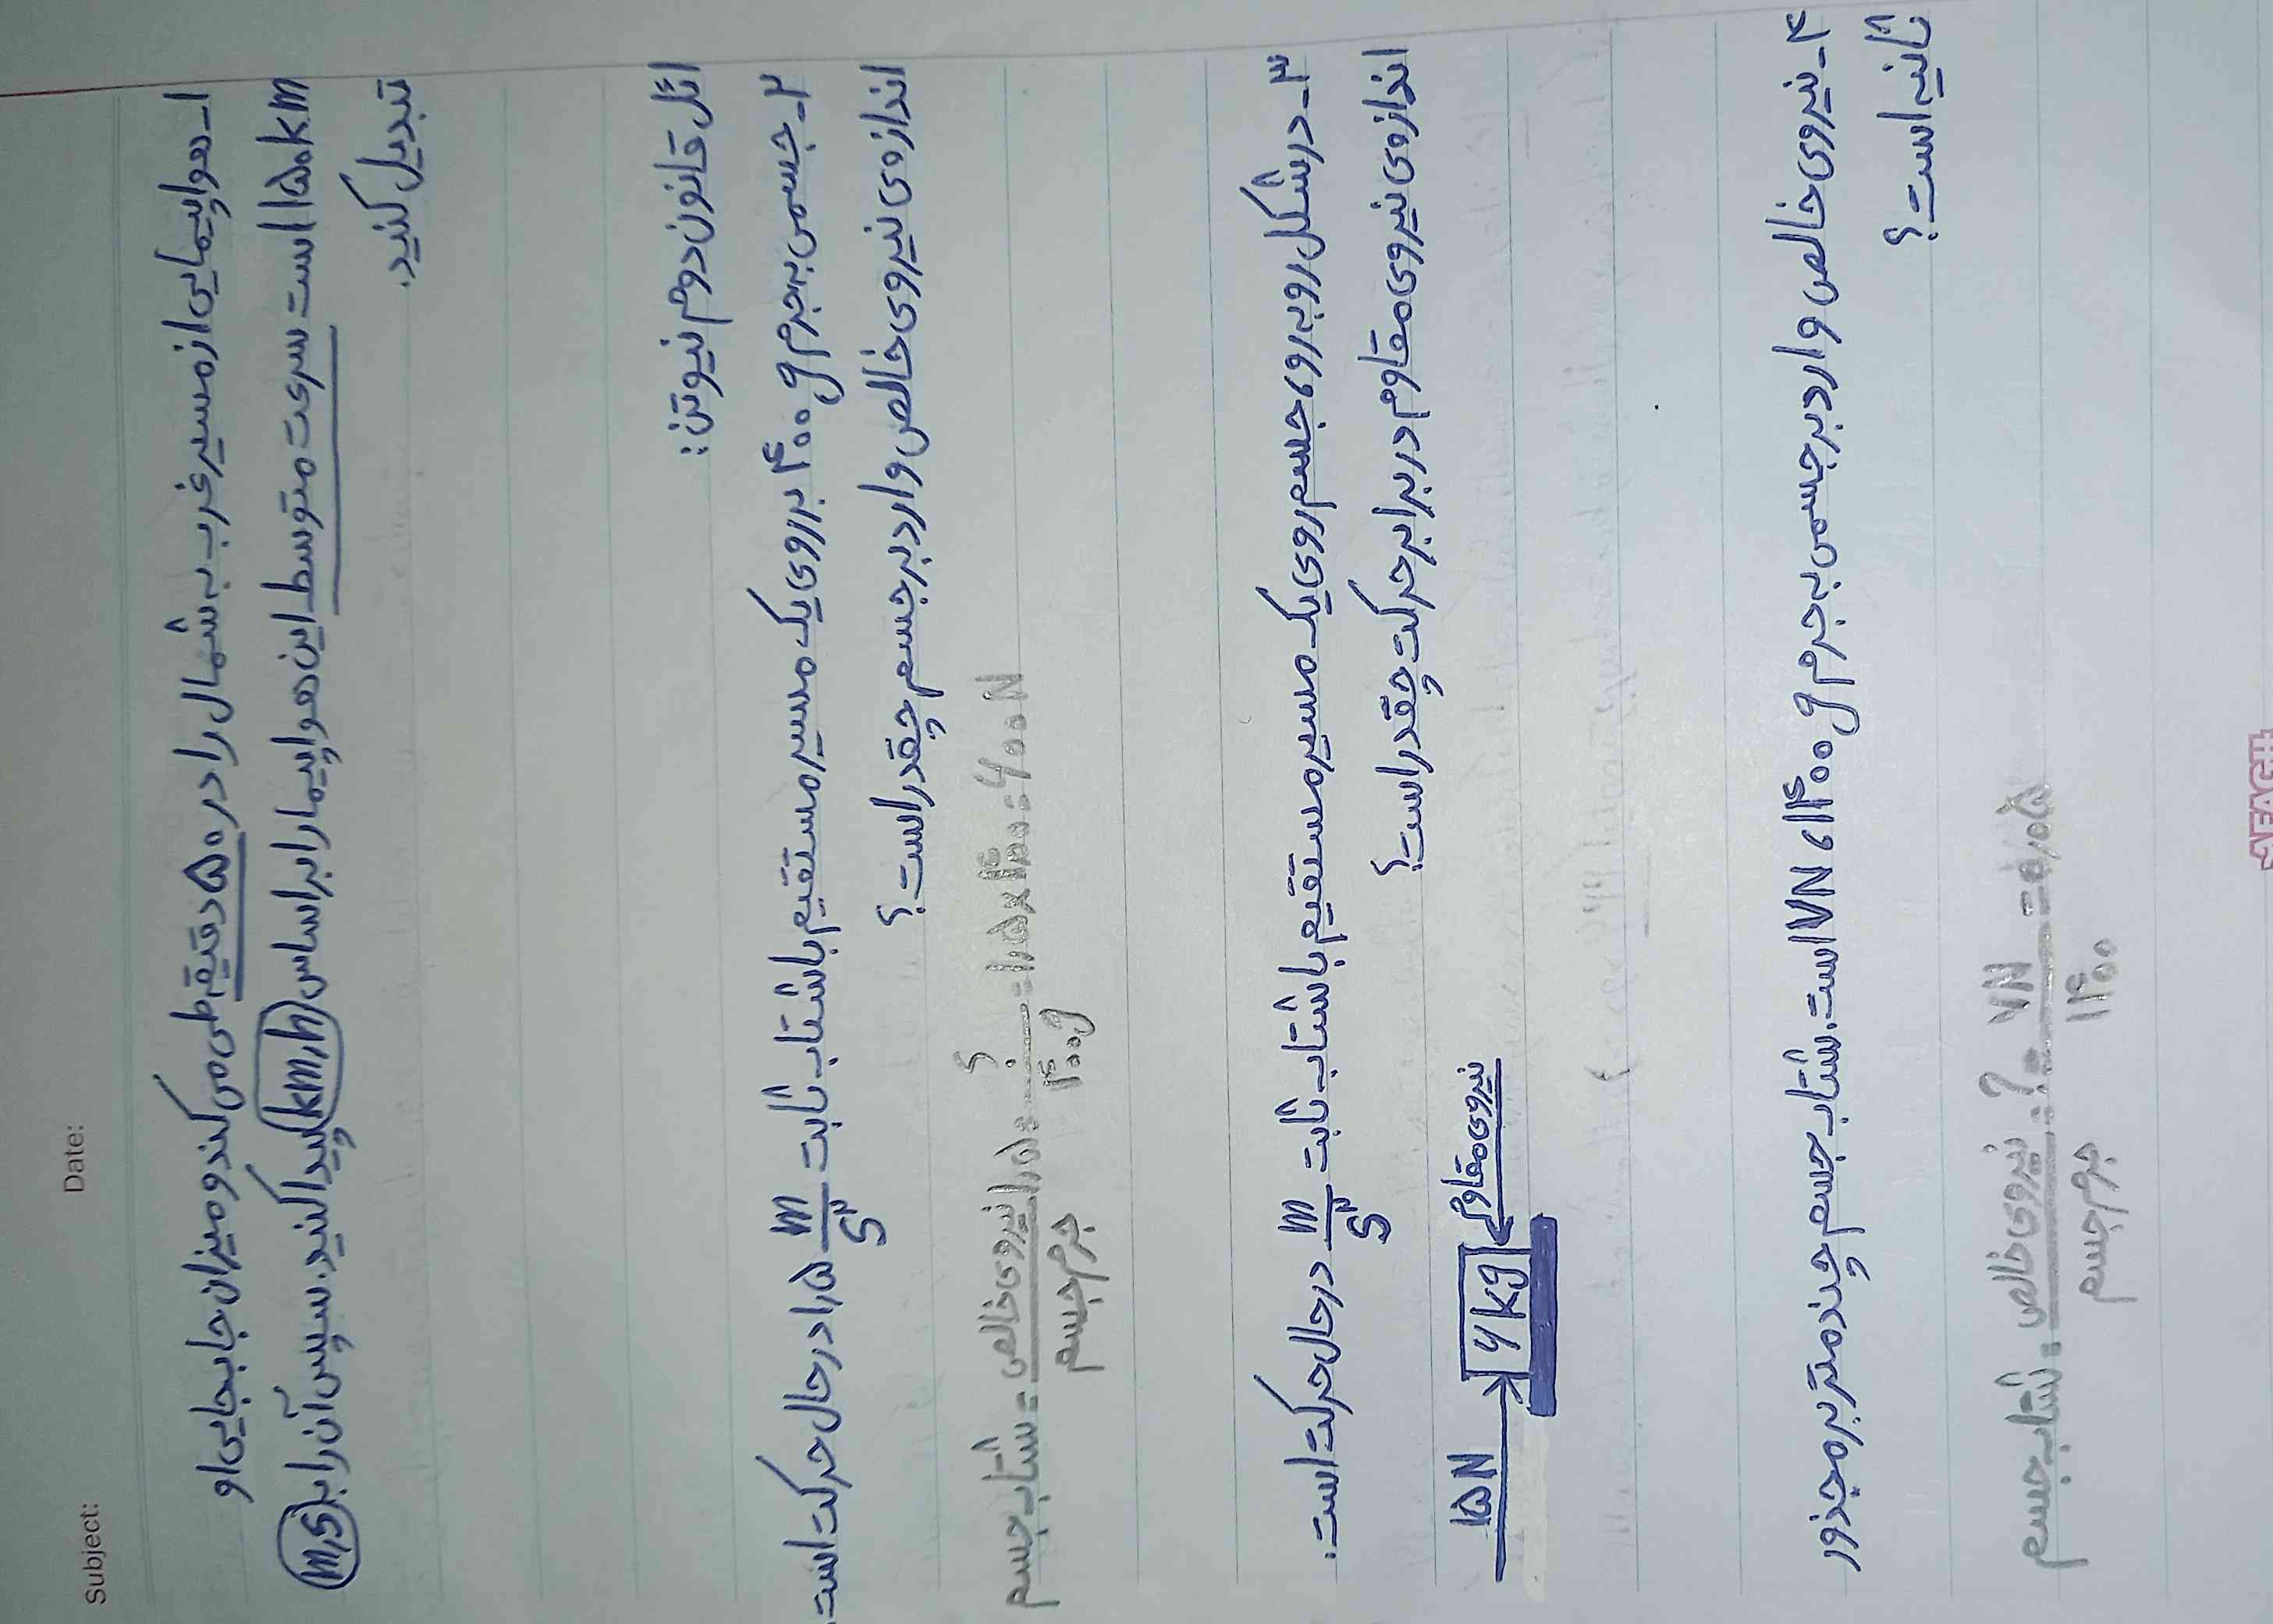 Subject:
Date:
۱- هواپیمایی از مسیر غرب به شمال را در ۵۰ دقیقه طی می کند و میزان جابجایی او
۱۵۰ km است سرعت متوسط این هواپیما را براساس (km/h) پیدا کنید. سپس آن را به (m/s)
تبدیل کنید.
ائل قانون دوم نیوتن:
۲- جسمی به جرم ۴۰۰ g بر روی یک مسیر مستقیم با شتاب ثابت ۱٫۵ m/s² در حال حرکت است.
اندازه ی نیروی خالص وارد بر جسم چقدر است؟
شتاب جسم = نیروی خالص / جرم جسم = ۱٫۵ = ؟ / ۴۰۰g = ۱٫۵×۴۰۰ = ۶۰۰ N
۳- در شکل روبه رو جسم روی یک مسیر مستقیم با شتاب ثابت ۲ m/s² در حال حرکت است.
اندازه ی نیروی مقاوم در برابر حرکت چقدر است؟
۱۵ N
۶ kg
نیروی مقاوم
۴- نیروی خالص وارد بر جسمی به جرم ۱۴۰۰ g، ۷N است. شتاب جسم چند متر بر مجذور
ثانیه است؟
شتاب جسم = نیروی خالص / جرم جسم = ؟ = ۷N / ۱۴۰۰ = ۰٫۰۵